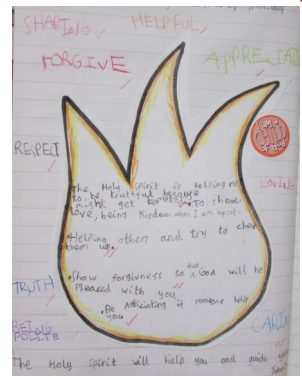 SHARING HELPFUL
FORGIVE APPRECIAT
RESPECT
I am a
child
of God
LOVING
The Holy Spirit is helping me
to be truthful because
might get tempted. To show
love, being Kindness when I am upset.
Helping others and try to cheer
them up.
Show forgivness so that God will be
TRUTH Pleased with you
Be Addiciating is someone help
you.
BEING
POLITE
CARIN
The Holy Spirit will help you and guide